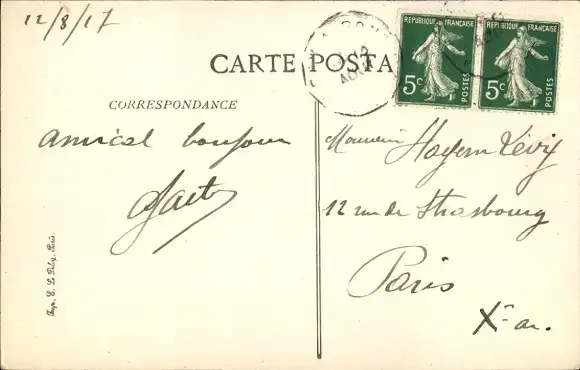 12/8/17
CARTE POSTA
CORRESPONDANCE
Amical bonjour
REPUBLIQUE FRANÇAISE
5c
POSTES
REPUBLIQUE FRANÇAISE
5c
POSTES
Monsieur Hayem Lévy
12 rue de Strasbourg
Paris
Xe ar.
Imp. E. Le Deley, Paris.